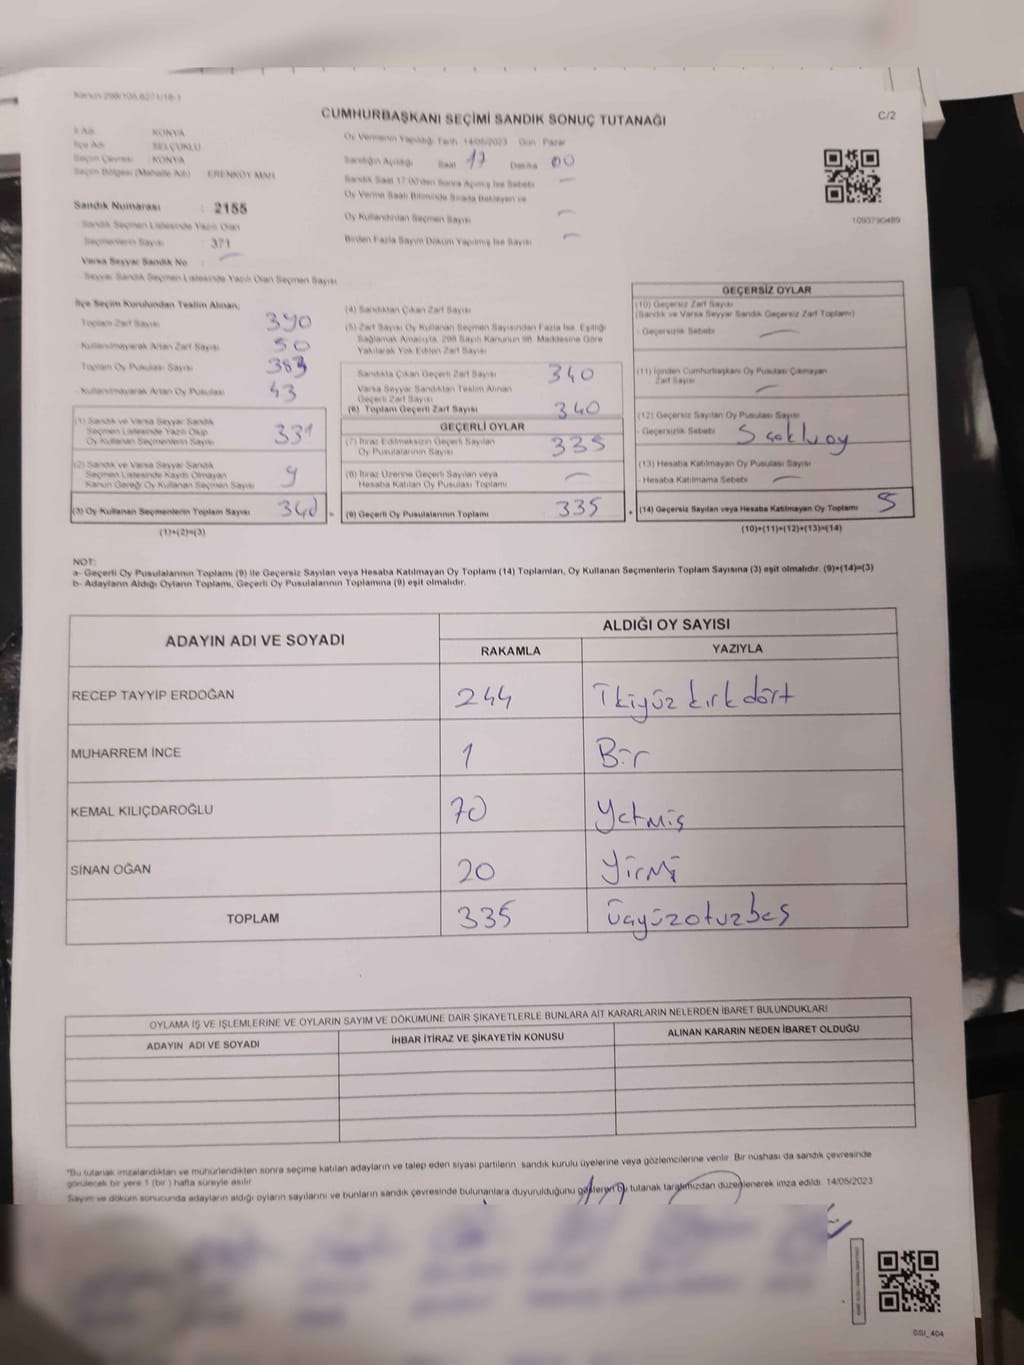 Kanun-298/105,6271/16-1
CUMHURBAŞKANI SEÇİMİ SANDIK SONUÇ TUTANAĞI
C/2
İl Adı : KONYA
İlçe Adı : SELÇUKLU
Seçim Çevresi : KONYA
Seçim Bölgesi (Mahalle Adı) : ERENKÖY MAH.
Sandık Numarası : 2155
Sandık Seçmen Listesinde Yazılı Olan
Seçmenlerin Sayısı : 371
Varsa Seyyar Sandık No :
Seyyar Sandık Seçmen Listesinde Yazılı Olan Seçmen Sayısı
Oy Vermenin Yapıldığı Tarih 14/05/2023 Gün Pazar
Sandığın Açıldığı Saat 17 Dakika 00
Sandık Saat 17:00'den Sonra Açılmış İse Sebebi -
Oy Verme Saati Bitiminde Sırada Bekleyen ve
Oy Kullandırılan Seçmen Sayısı -
Birden Fazla Sayım Döküm Yapılmış İse Sayısı -
1093790489
İlçe Seçim Kurulundan Teslim Alınan,
Toplam Zarf Sayısı 390
Kullanılmayarak Artan Zarf Sayısı 50
Toplam Oy Pusulası Sayısı 383
Kullanılmayarak Artan Oy Pusulası 43
(1) Sandık ve Varsa Seyyar Sandık
Seçmen Listesinde Yazılı Olup
Oy Kullanan Seçmenlerin Sayısı 331
(2) Sandık ve Varsa Seyyar Sandık
Seçmen Listesinde Kaydı Olmayan
Kanun Gereği Oy Kullanan Seçmen Sayısı 9
(3) Oy Kullanan Seçmenlerin Toplam Sayısı 340
(1)+(2)=(3)
(4) Sandıktan Çıkan Zarf Sayısı
(5) Zarf Sayısı Oy Kullanan Seçmen Sayısından Fazla İse, Eşitliği
Sağlamak Amacıyla, 298 Sayılı Kanunun 98. Maddesine Göre
Yakılarak Yok Edilen Zarf Sayısı
Sandıkta Çıkan Geçerli Zarf Sayısı 340
Varsa Seyyar Sandıktan Teslim Alınan
Geçerli Zarf Sayısı
(6) Toplam Geçerli Zarf Sayısı 340
GEÇERLİ OYLAR
(7) İtiraz Edilmeksizin Geçerli Sayılan
Oy Pusulalarının Sayısı 335
(8) İtiraz Üzerine Geçerli Sayılan veya
Hesaba Katılan Oy Pusulası Toplamı -
(9) Geçerli Oy Pusulalarının Toplamı 335
GEÇERSİZ OYLAR
(10) Geçersiz Zarf Sayısı
(Sandık ve Varsa Seyyar Sandık Geçersiz Zarf Toplamı)
- Geçersizlik Sebebi -
(11) İçinden Cumhurbaşkanı Oy Pusulası Çıkmayan
Zarf Sayısı -
(12) Geçersiz Sayılan Oy Pusulası Sayısı
- Geçersizlik Sebebi 5 çoklu oy
(13) Hesaba Katılmayan Oy Pusulası Sayısı
- Hesaba Katılmama Sebebi -
(14) Geçersiz Sayılan veya Hesaba Katılmayan Oy Toplamı 5
(10)+(11)+(12)+(13)=(14)
NOT:
a- Geçerli Oy Pusulalarının Toplamı (9) ile Geçersiz Sayılan veya Hesaba Katılmayan Oy Toplamı (14) Toplamları, Oy Kullanan Seçmenlerin Toplam Sayısına (3) eşit olmalıdır. (9)+(14)=(3)
b- Adayların Aldığı Oyların Toplamı, Geçerli Oy Pusulalarının Toplamına (9) eşit olmalıdır.
ADAYIN ADI VE SOYADI
ALDIĞI OY SAYISI
RAKAMLA YAZIYLA
RECEP TAYYİP ERDOĞAN 244 İkiyüz kırk dört
MUHARREM İNCE 1 Bir
KEMAL KILIÇDAROĞLU 70 Yetmiş
SİNAN OĞAN 20 Yirmi
TOPLAM 335 üçyüzotuzbeş
OYLAMA İŞ VE İŞLEMLERİNE VE OYLARIN SAYIM VE DÖKÜMÜNE DAİR ŞİKAYETLERLE BUNLARA AİT KARARLARIN NELERDEN İBARET BULUNDUKLARI
ADAYIN ADI VE SOYADI İHBAR İTİRAZ VE ŞİKAYETİN KONUSU ALINAN KARARIN NEDEN İBARET OLDUĞU
"Bu tutanak imzalandıktan ve mühürlendikten sonra seçime katılan adayların ve talep eden siyasi partilerin sandık kurulu üyelerine veya gözlemcilerine verilir. Bir nüshası da sandık çevresinde
görülecek bir yere 1 (bir ) hafta süreyle asılır.
Sayım ve döküm sonucunda adayların aldığı oyların sayılarını ve bunların sandık çevresinde bulunanlara duyurulduğunu gösteren bu tutanak tarafımızdan düzenlenerek imza edildi. 14/05/2023
SSİ_40A